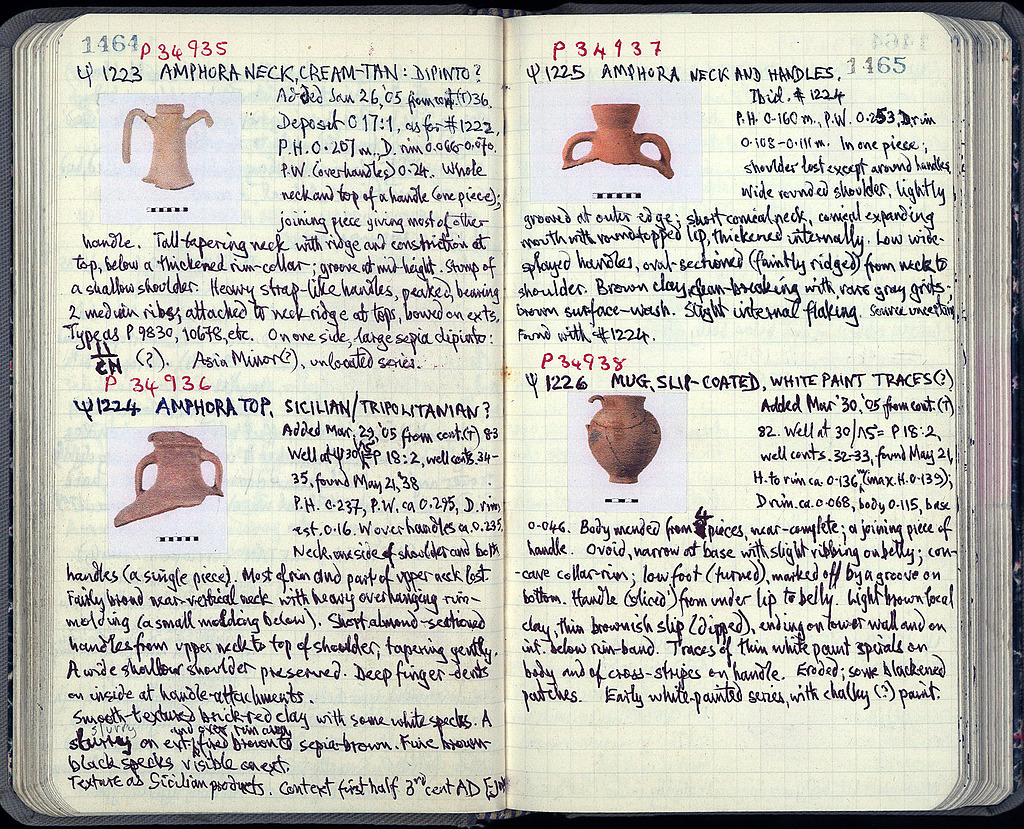 1464
P 34935
Ψ 1223 AMPHORA NECK, CREAM-TAN: DIPINTO?
Added Jan 26, '05 from cont.(T) 36.
Deposit O 17:1, as for #1222.
P.H. 0.207 m., D. rim 0.066-0.070.
P.W. (over handles) 0.24. Whole
neck and top of a handle (one piece);
joining piece giving most of other
handle. Tall tapering neck with ridge and constriction at
top, below a thickened rim-collar; groove at mid-height. Stump of
a shallow shoulder. Heavy strap-like handles, peaked, bearing
2 median ribs, attached to neck ridge at tops, bowed on exts.
Type as P 9830, 10678, etc. On one side, large sepia dipinto:
(?). Asia Minor(?), unlocated series.
P 34936
Ψ 1224 AMPHORA TOP, SICILIAN/TRIPOLITANIAN?
Added Mar. 29, '05 from cont.(T) 83
Well at 30/ΛΕ = P 18:2, well conts. 34-
35, found May 21, '38
P.H. 0.237, P.W. ca 0.295, D. rim,
est. 0.16. W over handles ca 0.235.
Neck, one side of shoulder and both
handles (a single piece). Most of rim and part of upper neck lost.
Fairly broad near-vertical neck with heavy overhanging rim-
molding (a small molding below). Short almond-sectioned
handles from upper neck to top of shoulder, tapering gently.
A wide shallow shoulder preserved. Deep finger-dents
on inside at handle-attachments.
Smooth-textured brick-red clay with some white specks. A
slurry and over rim away
slurry on ext., fired brown to sepia-brown. Fine brown-
black specks visible on ext.
Texture as Sicilian products. Context first half 3rd cent AD
P 34937
1465
Ψ 1225 AMPHORA NECK AND HANDLES.
Ibid. #1224
P.H. 0.160 m., P.W. 0.253, D. rim
0.108-0.111 m. In one piece;
shoulder lost except around handles.
Wide rounded shoulder, lightly
grooved at outer edge; short conical neck, conical expanding
mouth with round-topped lip, thickened internally. Low wide-
splayed handles, oval-sectioned (faintly ridged) from neck to
shoulder. Brown clay, clean-breaking with rare gray grits-
brown surface-wash. Slight internal flaking. Source uncertain.
Found with #1224.
P 34938
Ψ 1226 MUG, SLIP-COATED, WHITE PAINT TRACES(?)
Added Mar '30, '05 from cont. (T)
82. Well at 30/ΛΕ = P 18:2,
well conts. 32-33, found May 21,
H. to rim ca. 0.136 m (max. H. 0.139),
D. rim ca. 0.068, body 0.115, base
0.046. Body mended from 4 pieces, near-complete; a joining piece of
handle. Ovoid, narrow at base with slight ribbing on belly; con-
-cave collar-rim; low foot (turned), marked off by a groove on
bottom. Handle ('sliced') from under lip to belly. Light brown local
clay, thin brownish slip (dipped), ending on lower wall and on
int. below rim-band. Traces of thin white paint spirals on
body and of cross-stripes on handle. Eroded; some blackened
patches. Early white-painted series, with chalky (?) paint.